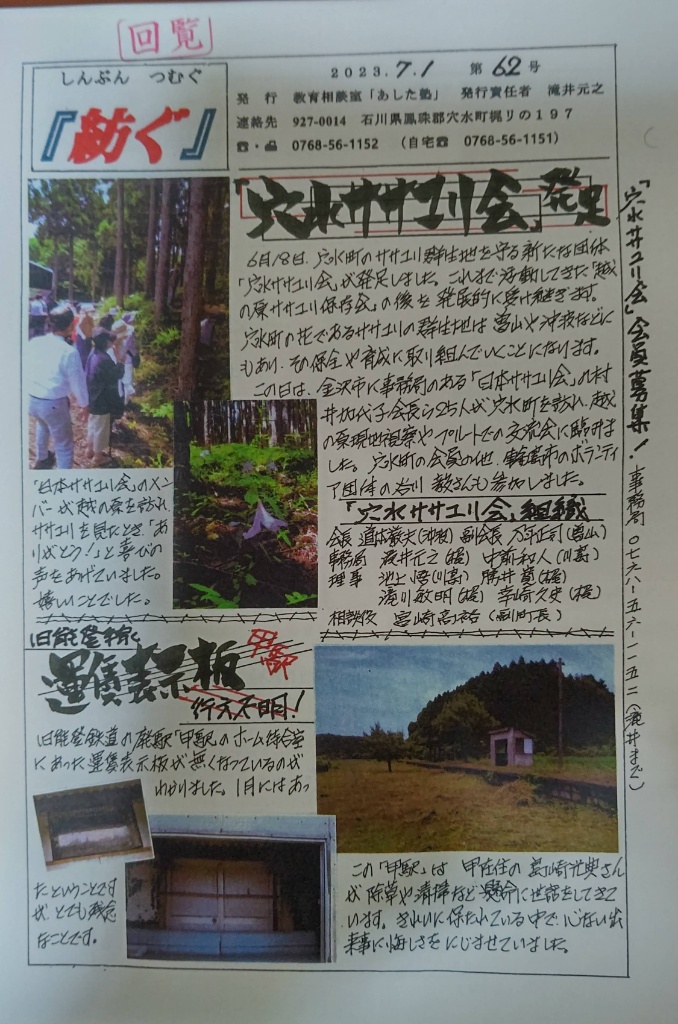 回覧
しんぶん つむぐ
『紡ぐ』
2023.7.1 第62号
発行 教育相談室「あした塾」 発行責任者 滝井元之
連絡先 927-0014 石川県鳳珠郡穴水町梶リの197
☎・📠 0768-56-1152 (自宅☎ 0768-56-1151)
「穴水ササユリ会」発足
6月18日、穴水町のササユリ群生地を守る新たな団体
「穴水ササユリ会」が発足しました。これまで活動してきた「越
の原ササユリ保存会」の後を発展的に受け継ぎます。
穴水町の花であるササユリの群生地は曽山や沖波などに
もあり、その保全や育成に取り組んでいくことになります。
この日は、金沢市に事務局のある「日本ササユリ会」の村
井加代子会長ら25人が穴水町を訪れ、越
の原現地視察やプルートでの交流会に臨みま
した。穴水町の会員の他、輪島市のボランティ
ア団体の谷川 毅さんも参加しました。
「日本ササユリ会」のメン
バーが越の原を訪れ、
ササユリを見たとき、「あ
りがとう!」と喜びの
声をあげていました。
嬉しいことでした。
「穴水ササユリ会」組織
会長 道本 (沖波) 副会長 正司(曽山)
事務局 滝井元之(梶) 中前和人(川島)
理事 池上 悟(川島) 勝井 寛(梶)
湯川敏明(梶) 幸崎久史(梶)
相談役 宮崎高裕(副町長)
「穴水ササユリ会」会員募集! 事務局 0768-56-1152(滝井まで)
旧能登鉄道 甲駅
運賃表示板
行方不明!
旧能登鉄道の廃駅「甲駅」のホーム待合室
にあった運賃表示板が無くなっているのが
わかりました。1月にはあっ
たということです
が、とても残念
なことです。
この「甲駅」は 甲在住の 崎光典さん
が除草や清掃など懸命に世話をしてきて
います。きれいに保たれている中で、心ない出
来事に悔しさをにじませていました。